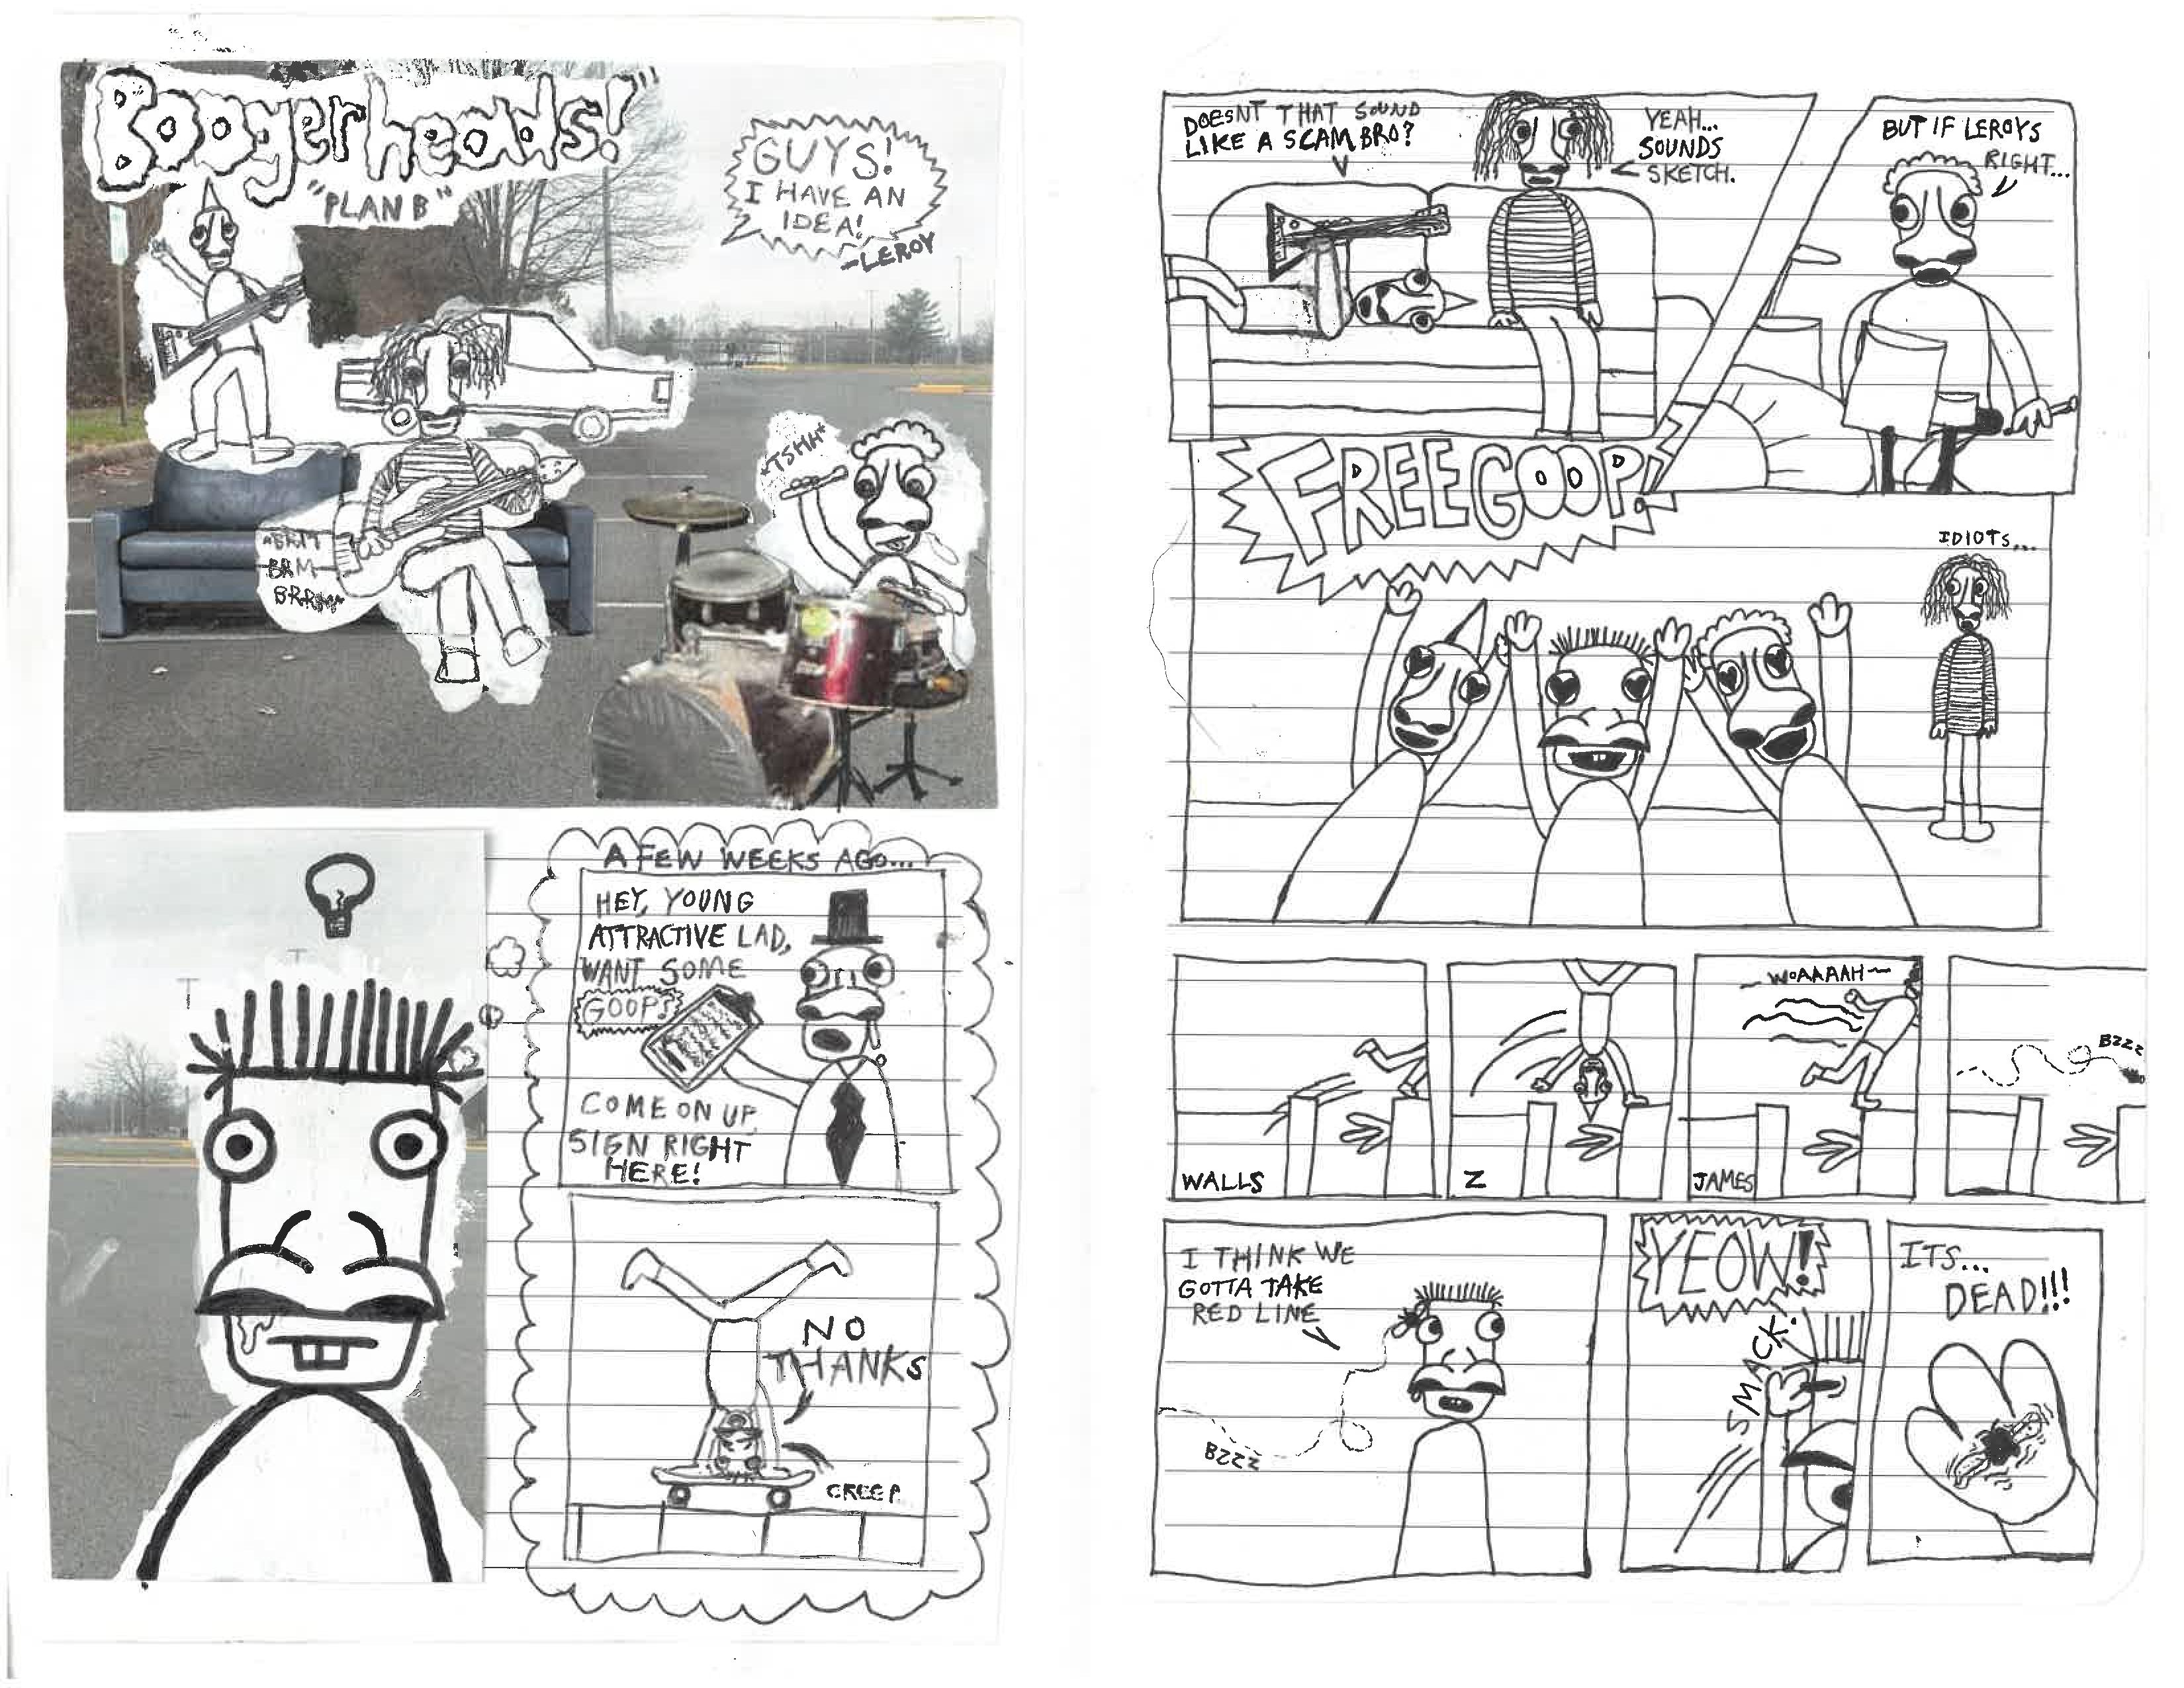 Boogerheads!
"PLAN B"
GUYS!
I HAVE AN
IDEA!
-LEROY
*TSHH*
BRM
BRRM*
A FEW WEEKS AGO...
HEY, YOUNG
ATTRACTIVE LAD,
WANT SOME
GOOP?
COME ON UP,
SIGN RIGHT
HERE!
NO
THANKS
CREEP.
DOESNT THAT SOUND
LIKE A SCAM BRO?
YEAH...
SOUNDS
SKETCH.
BUT IF LEROYS
RIGHT...
FREE GOOP!
IDIOTS...
WALLS
Z
WOAAAAH
JAMES
BZZZ
I THINK WE
GOTTA TAKE
RED LINE
BZZZ
YEOW!
SMACK!
ITS...
DEAD!!!